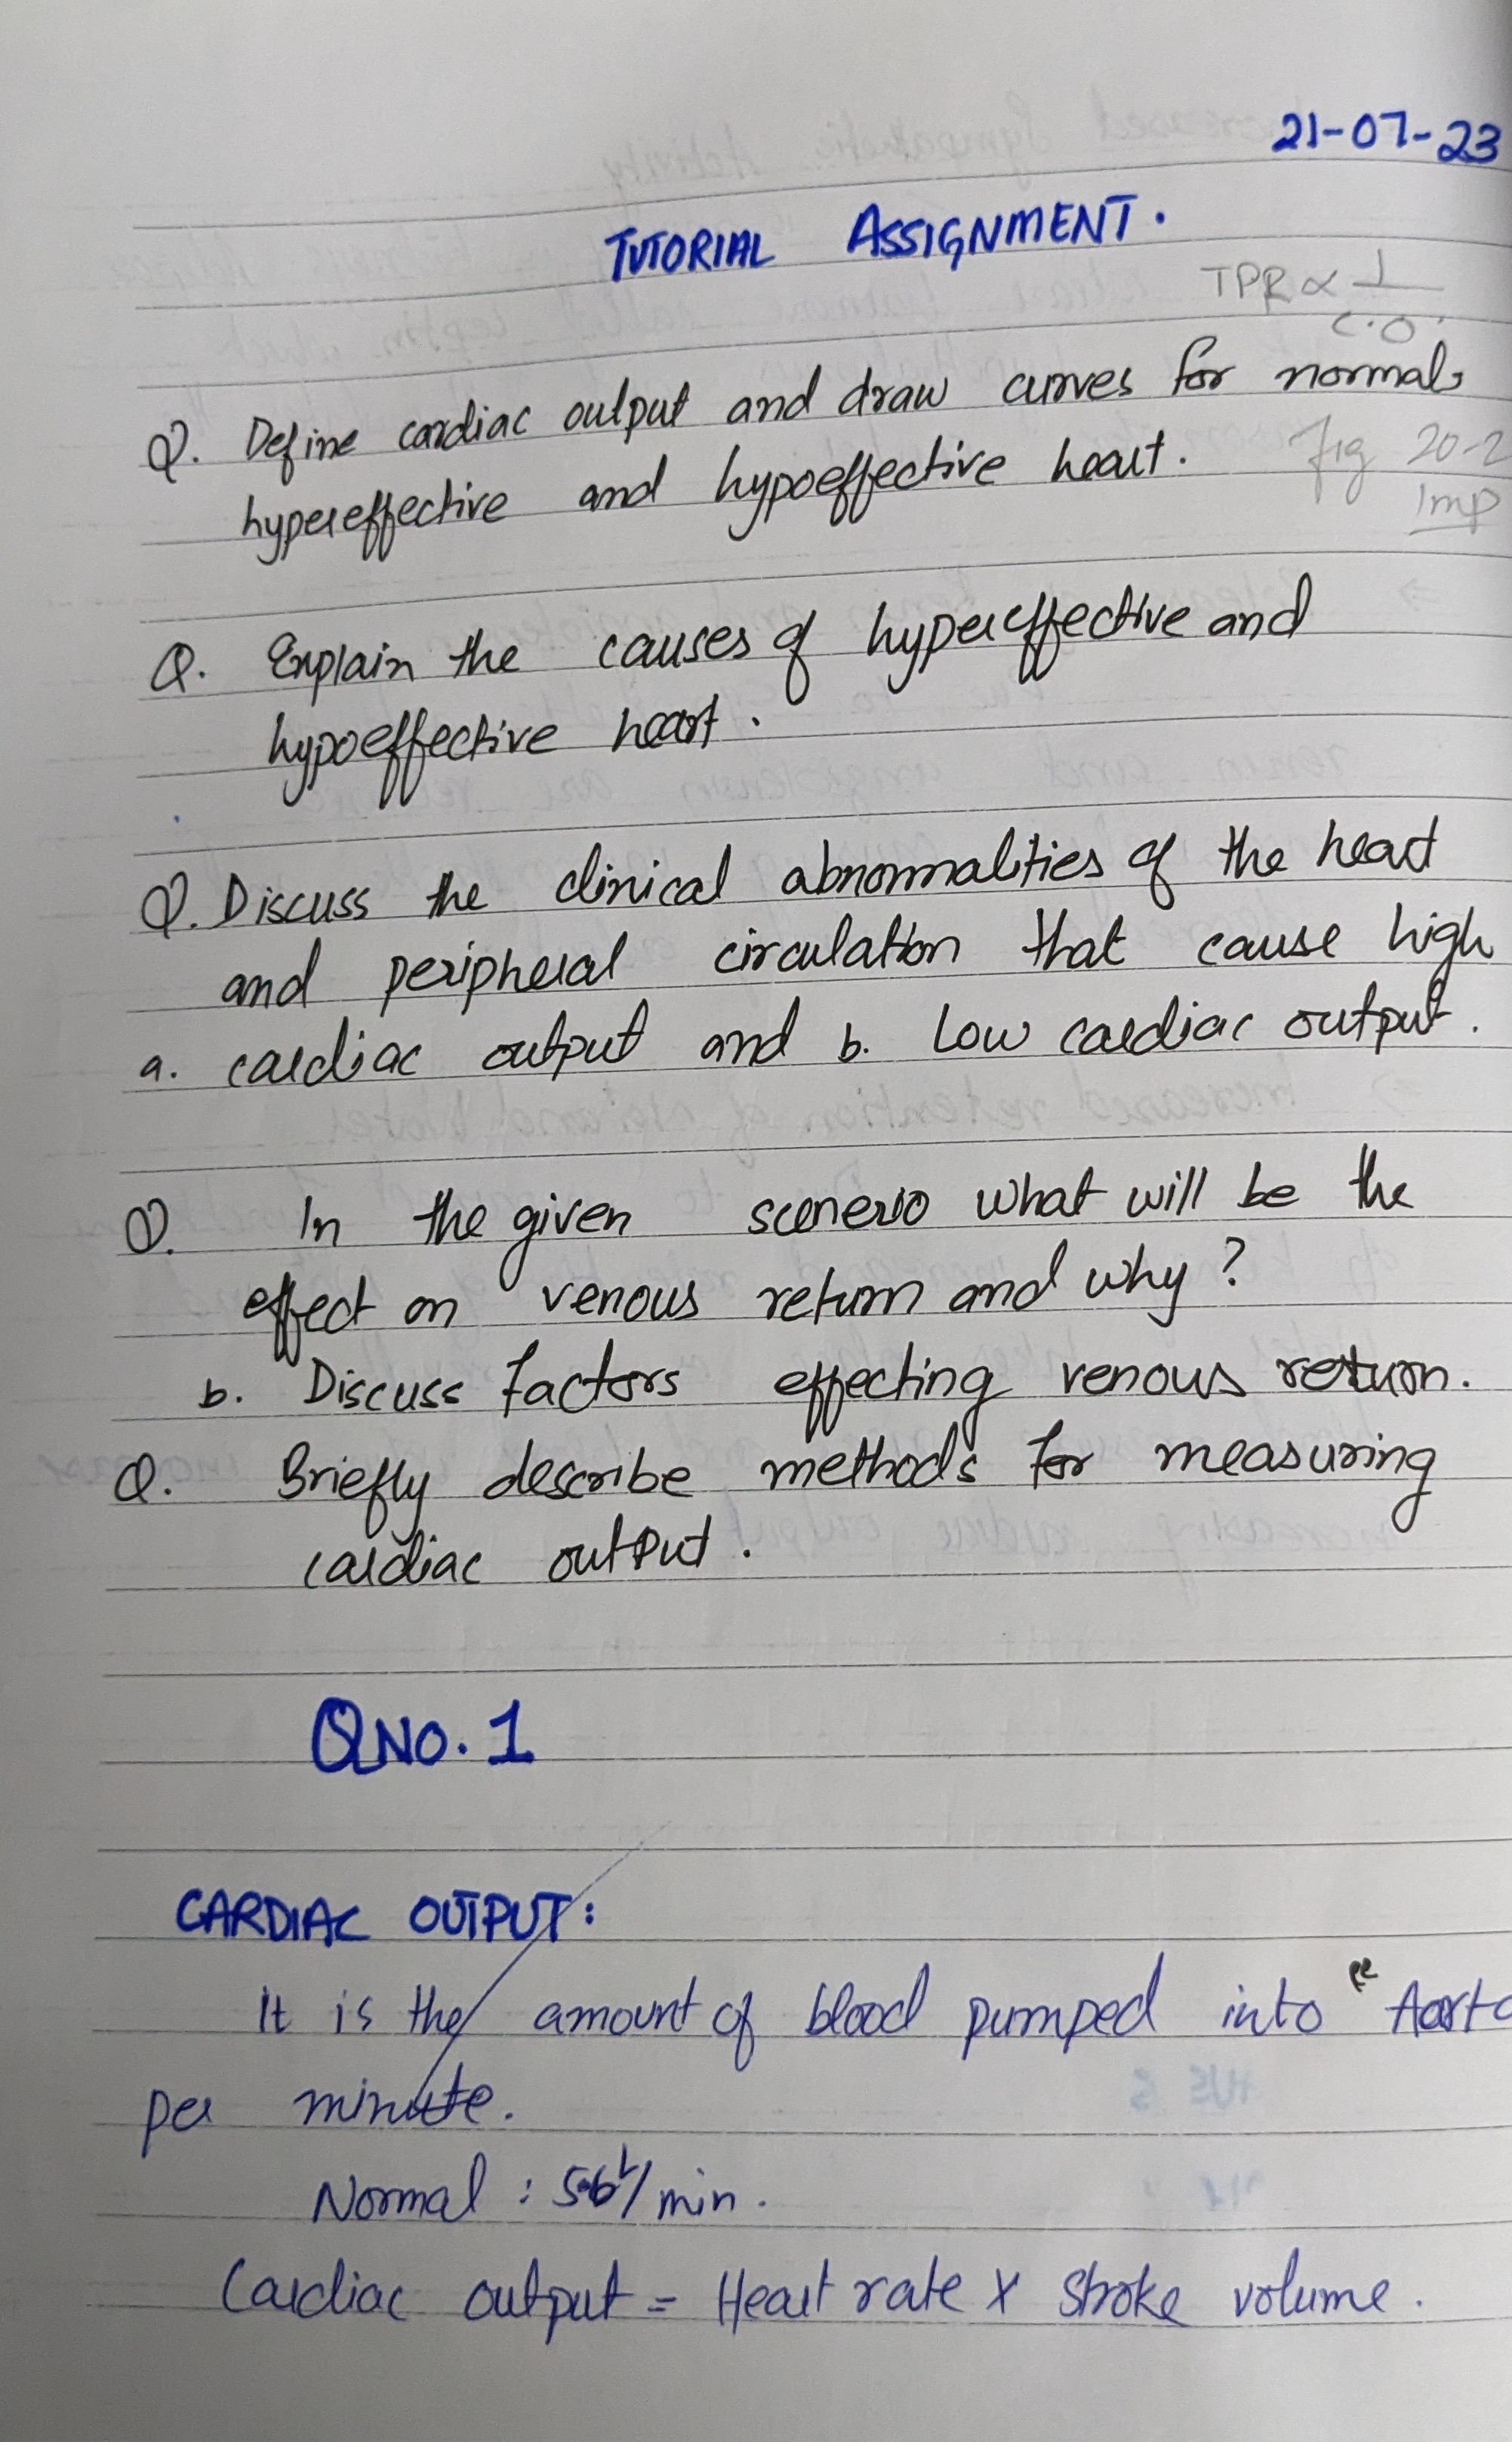 21-07-23
TUTORIAL ASSIGNMENT.
TPR ∝ 1
C.O.
Q. Define cardiac output and draw curves for normal,
hypereffective and hypoeffective heart.
Fig 20-2
Imp
Q. Explain the causes of hypereffective and
hypoeffective heart.
Q. Discuss the clinical abnormalities of the heart
and peripheral circulation that cause high
a. cardiac output and b. Low cardiac output.
Q. In the given scenerio what will be the
effect on venous return and why?
b. Discuss factors effecting venous return.
Q. Briefly describe methods for measuring
cardiac output.
QNO. 1
CARDIAC OUTPUT:
It is the amount of blood pumped into Aorta
per minute.
Normal : 5-6 L/min.
Cardiac output = Heart rate X stroke volume.